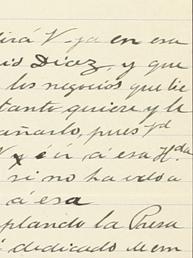 irá V. ya en esa
is Diaz, y que
los negocios que tie
tanto quiere y le
añarlo, pues yd
ir á esa Hda
si no ha ido a
á esa
plando la Presa
dedicado